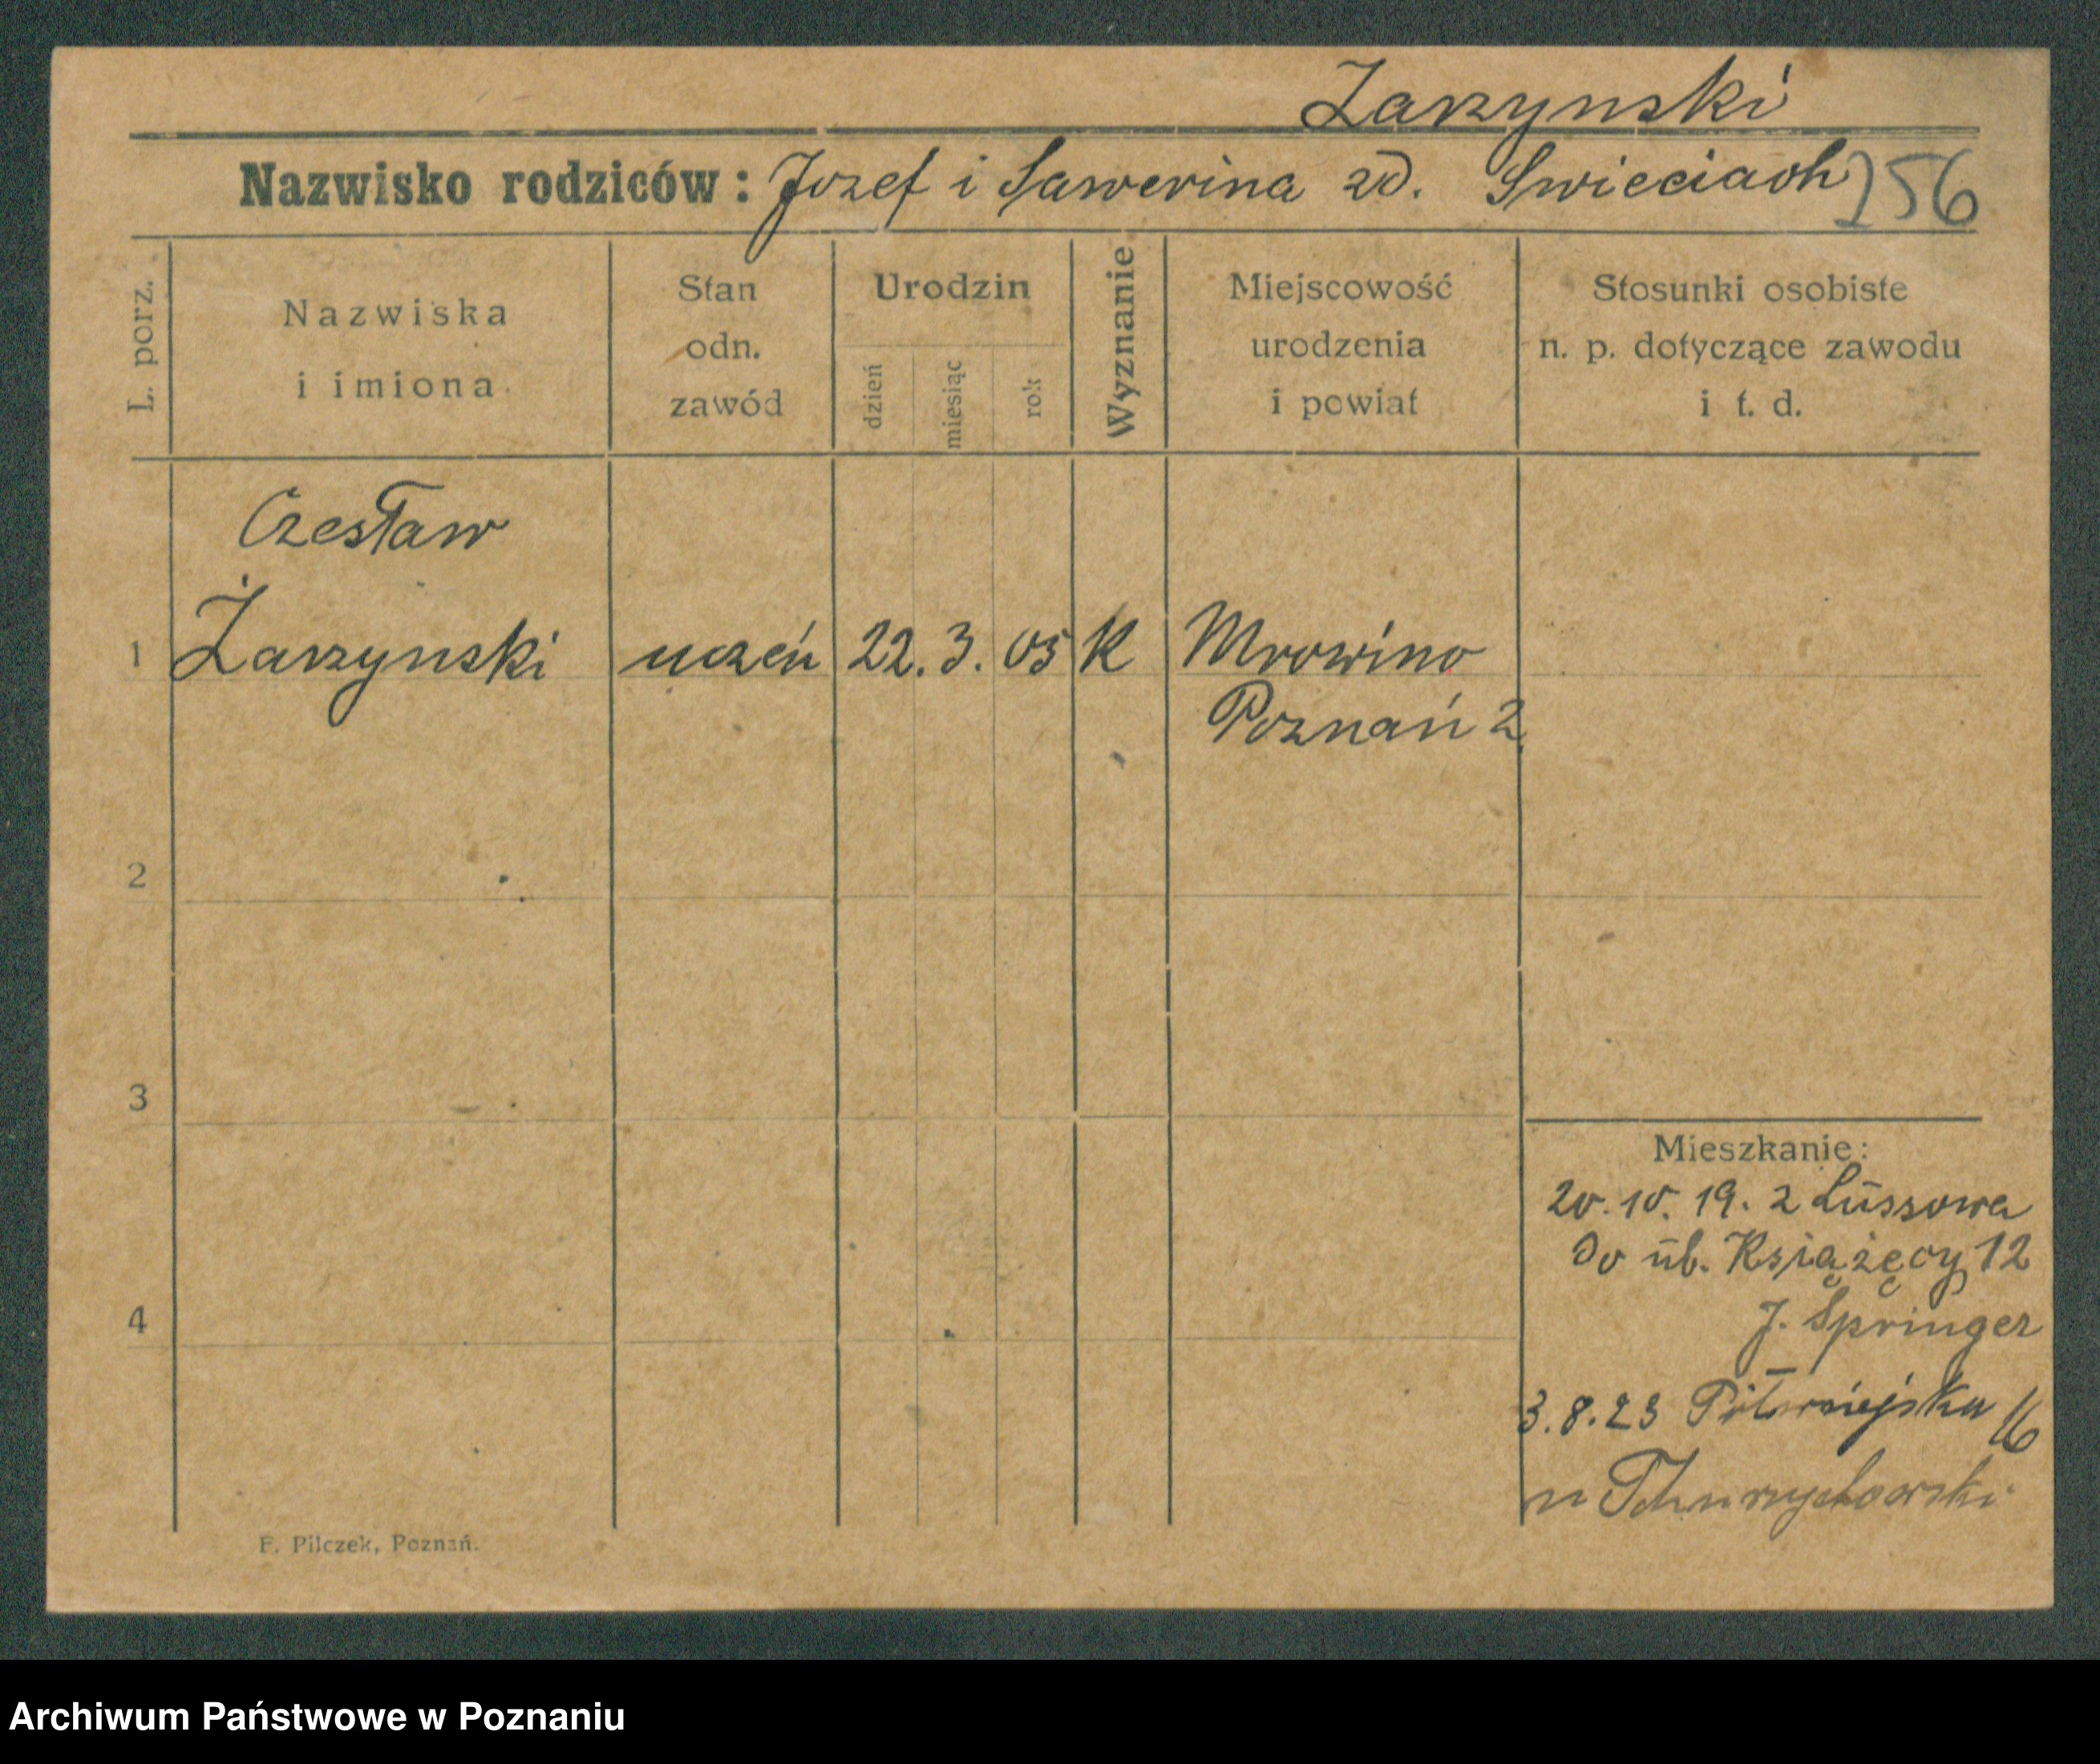 Zarzynski
Nazwisko rodziców: Jozef i Sawerina zd. Swieciach 256
L. porz.
Nazwiska i imiona
Stan odn. zawód
Urodzin
dzień miesiąc rok
Wyznanie
Miejscowość urodzenia i powiat
Stosunki osobiste n. p. dotyczące zawodu i t. d.
Czesław
1 Żarzynski uczeń 22. 3. 05 K Mrowino
Poznań 2
2
3
Mieszkanie:
20. 10. 19. z Lussowa
do ul. Książęcy 12
4
J. Springer
3.8.23 16
F. Pilczek, Poznań.
Archiwum Państwowe w Poznaniu